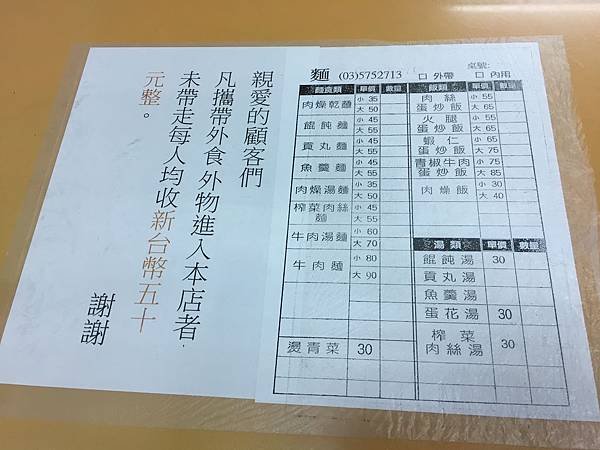 親愛的顧客們
凡攜帶外食外物進入本店者,
未帶走每人均收新台幣五十
元整。
謝謝
桌號:
麵 (03)5752713 □ 外帶 □ 內用
麵食類 單價 數量
肉燥乾麵 小 35 大 50
餛飩麵 小 45 大 55
貢丸麵 小 45 大 55
魚羹麵 小 45 大 55
肉燥湯麵 小 35 大 50
榨菜肉絲麵 小 45 大 55
牛肉湯麵 小 60 大 70
牛肉麵 小 80 大 90
燙青菜 30
飯類 單價 數量
肉絲蛋炒飯 小 55 大 65
火腿蛋炒飯 小 55 大 65
蝦仁蛋炒飯 小 65 大 75
青椒牛肉蛋炒飯 小 75 大 85
肉燥飯 小 30 大 40
湯類 單價 數量
餛飩湯 30
貢丸湯
魚羹湯
蛋花湯 30
榨菜肉絲湯 30